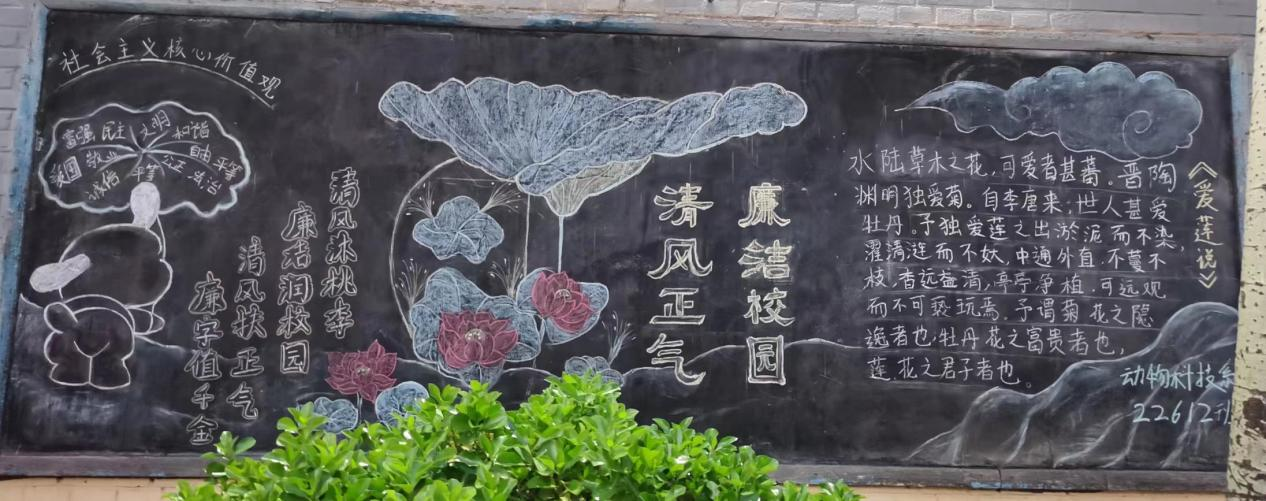 社会主义核心价值观
富强 民主 文明 和谐
爱国 敬业 自由 平等
诚信 平等 公正 法治
清风沐桃李
廉洁润校园
清风扶正气
廉字值千金
廉洁校园
清风正气
《爱莲说》
水陆草木之花,可爱者甚蕃。晋陶
渊明独爱菊。自李唐来,世人甚爱
牡丹。予独爱莲之出淤泥而不染,
濯清涟而不妖,中通外直,不蔓不
枝,香远益清,亭亭净植,可远观
而不可亵玩焉。予谓菊花之隐
逸者也,牡丹花之富贵者也,
莲花之君子者也。
动物科技系
22612班